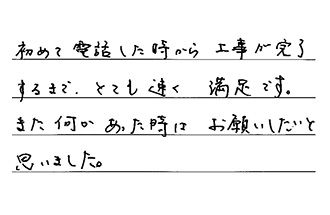 初めて電話した時から 工事が完了
するまで、とても 速く 満足です。
また何か あった時は お願いしたいと
思いました。